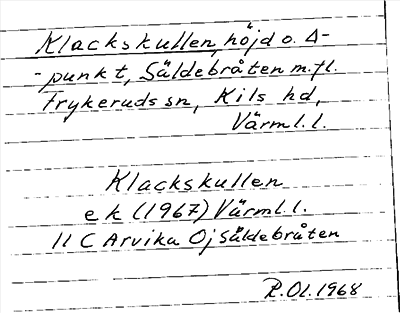 Klackskullen, höjd o. Δ-
-punkt, Säldebråten m.fl.
Frykeruds sn, Kils hd,
Värml.l.
Klackskullen
e k (1967) Värml.l.
11 C Arvika Oj Säldebråten
R.Ol.1968